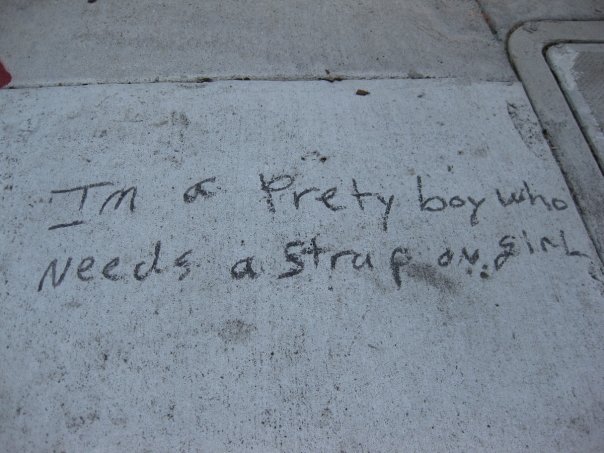 Im a Prety boy who
Needs a strap on girl